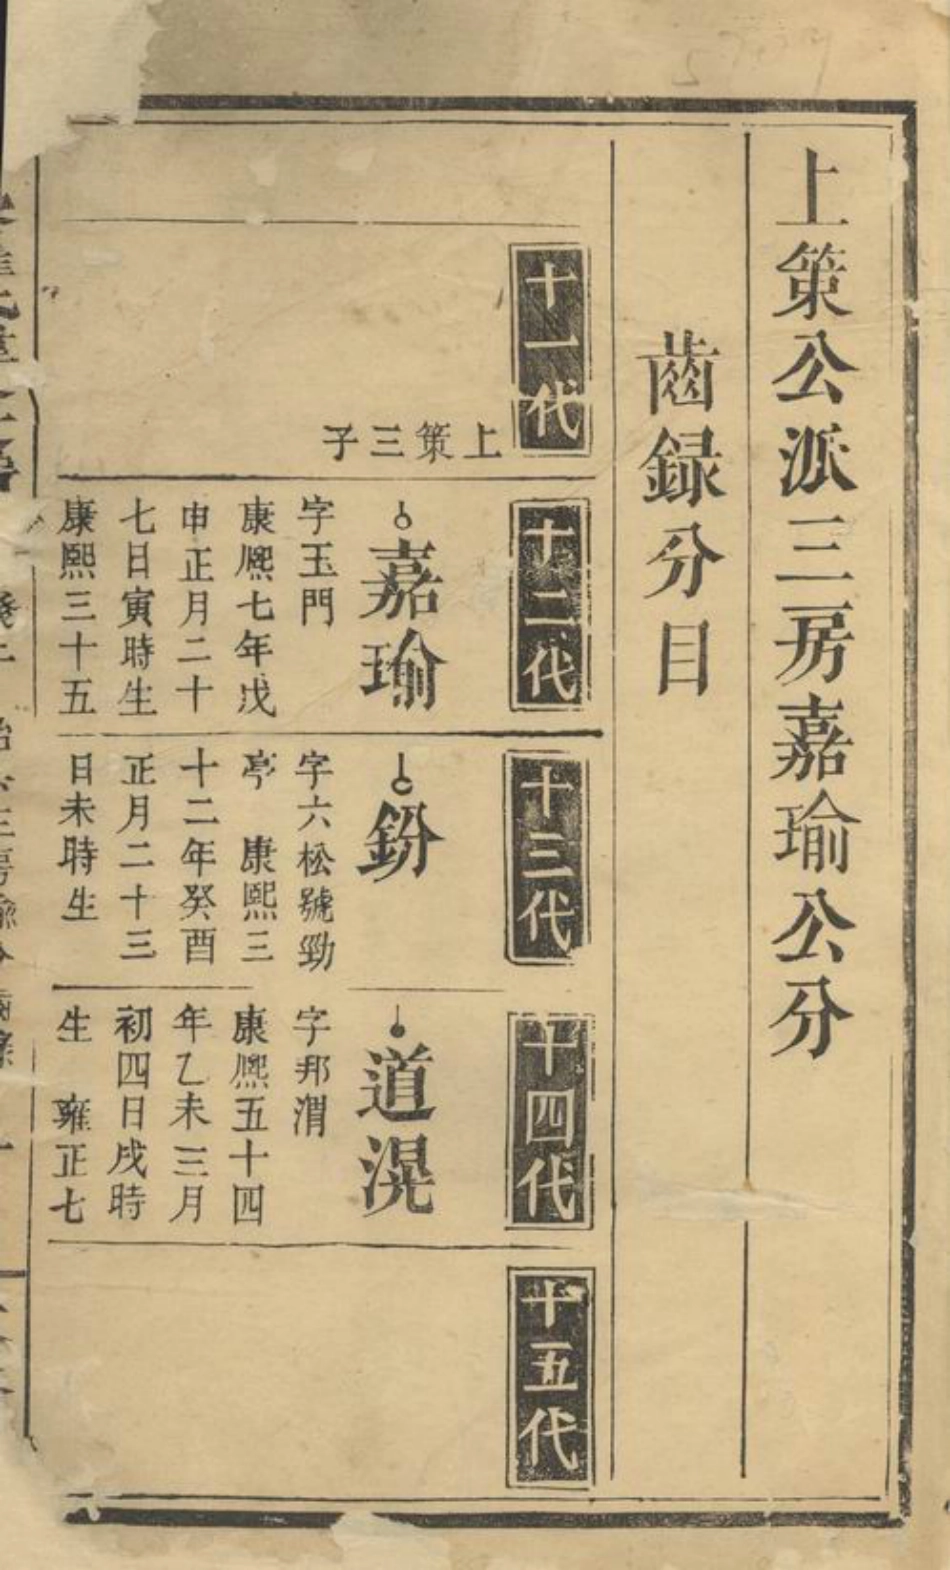 上策公派三房嘉瑜公分
齒録分目
十一代
上策三子
十二代
嘉瑜
字玉門
康熈七年戊
申正月二十
七日寅時生
康熙三十五
十三代
鈖
字六松號勁
亭 康熙三
十二年癸酉
正月二十三
日未時生
十四代
道滉
字邦渭
康熈五十四
年乙未三月
初四日戌時
生 雍正七
十五代